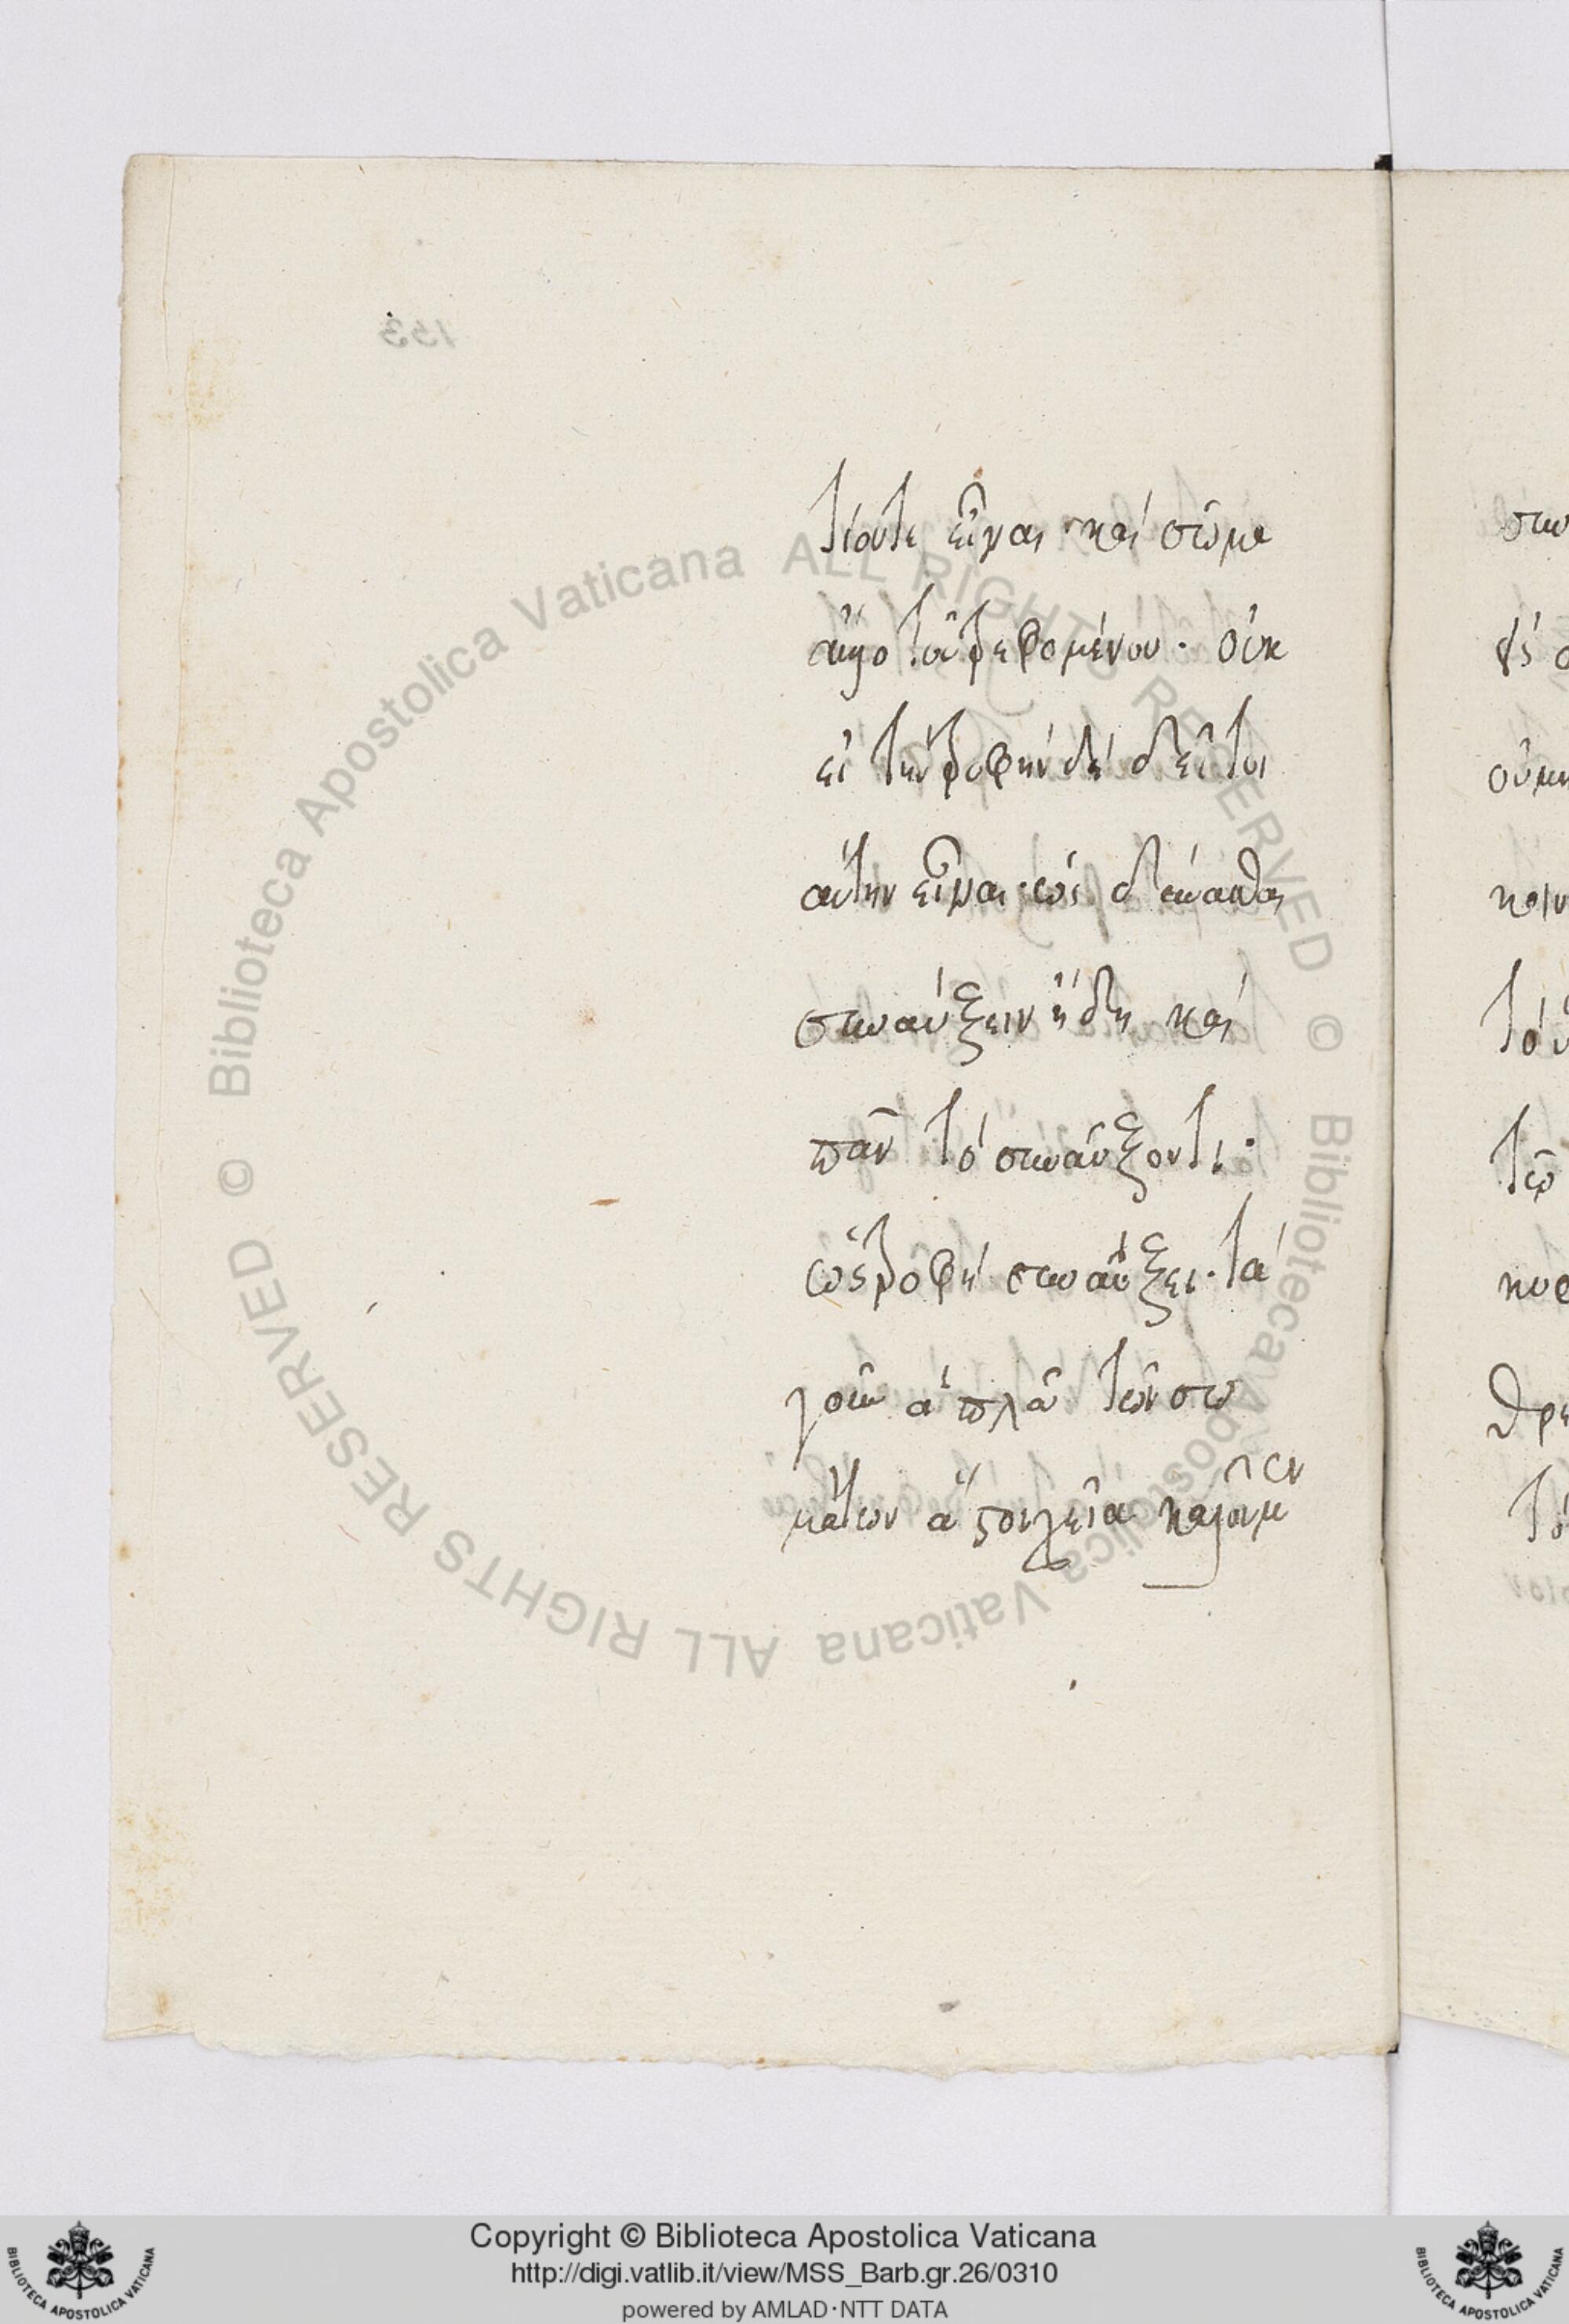 133
τιοῦτε εἶναι καὶ σῶμα
ἄλλο τοῦ τρεφομένου· οὐκ
εἰ τὴν τροφὴν δὴ δεῖ τοι
αύτην εἶναι· ὡς δύνασθαι
συναύξειν ἤδη καὶ
πᾶν τὸ συναύξον τι·
ὡς τροφὴ συναύξει· τὰ
γοῦν ἁπλᾶ τῶν σω
μάτων ἃ στοιχεῖα καλοῦμεν
© Biblioteca Apostolica Vaticana ALL RIGHTS RESERVED © Biblioteca Apostolica Vaticana ALL RIGHTS RESERVED
Copyright © Biblioteca Apostolica Vaticana
http://digi.vatlib.it/view/MSS_Barb.gr.26/0310
powered by AMLAD·NTT DATA
BIBLIOTECA APOSTOLICA VATICANA
BIBLIOTECA APOSTOLICA VATICANA